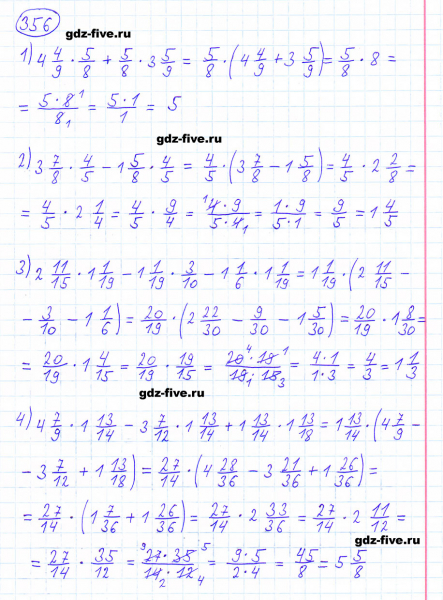 356
gdz-five.ru
1) 4 4/9 · 5/8 + 5/8 · 3 5/9 = 5/8 · (4 4/9 + 3 5/9) = 5/8 · 8 =
= 5·8¹/8₁ = 5·1/1 = 5
gdz-five.ru
2) 3 7/8 · 4/5 − 1 5/8 · 4/5 = 4/5 · (3 7/8 − 1 5/8) = 4/5 · 2 2/8 =
= 4/5 · 2 1/4 = 4/5 · 9/4 = ¹4·9/5·4₁ = 1·9/5·1 = 9/5 = 1 4/5
gdz-five.ru
3) 2 11/15 · 1 1/19 − 1 1/19 · 3/10 − 1 1/6 · 1 1/19 = 1 1/19 · (2 11/15 −
− 3/10 − 1 1/6) = 20/19 · (2 22/30 − 9/30 − 1 5/30) = 20/19 · 1 8/30 =
= 20/19 · 1 4/15 = 20/19 · 19/15 = 20⁴·19¹/19₁·15₃ = 4·1/1·3 = 4/3 = 1 1/3
gdz-five.ru
4) 4 7/9 · 1 13/14 − 3 7/12 · 1 13/14 + 1 13/14 · 1 13/18 = 1 13/14 · (4 7/9 −
− 3 7/12 + 1 13/18) = 27/14 · (4 28/36 − 3 21/36 + 1 26/36) =
= 27/14 · (1 7/36 + 1 26/36) = 27/14 · 2 33/36 = 27/14 · 2 11/12 =
= 27/14 · 35/12 = ⁹27·35⁵/14₂·12₄ = 9·5/2·4 = 45/8 = 5 5/8
gdz-five.ru